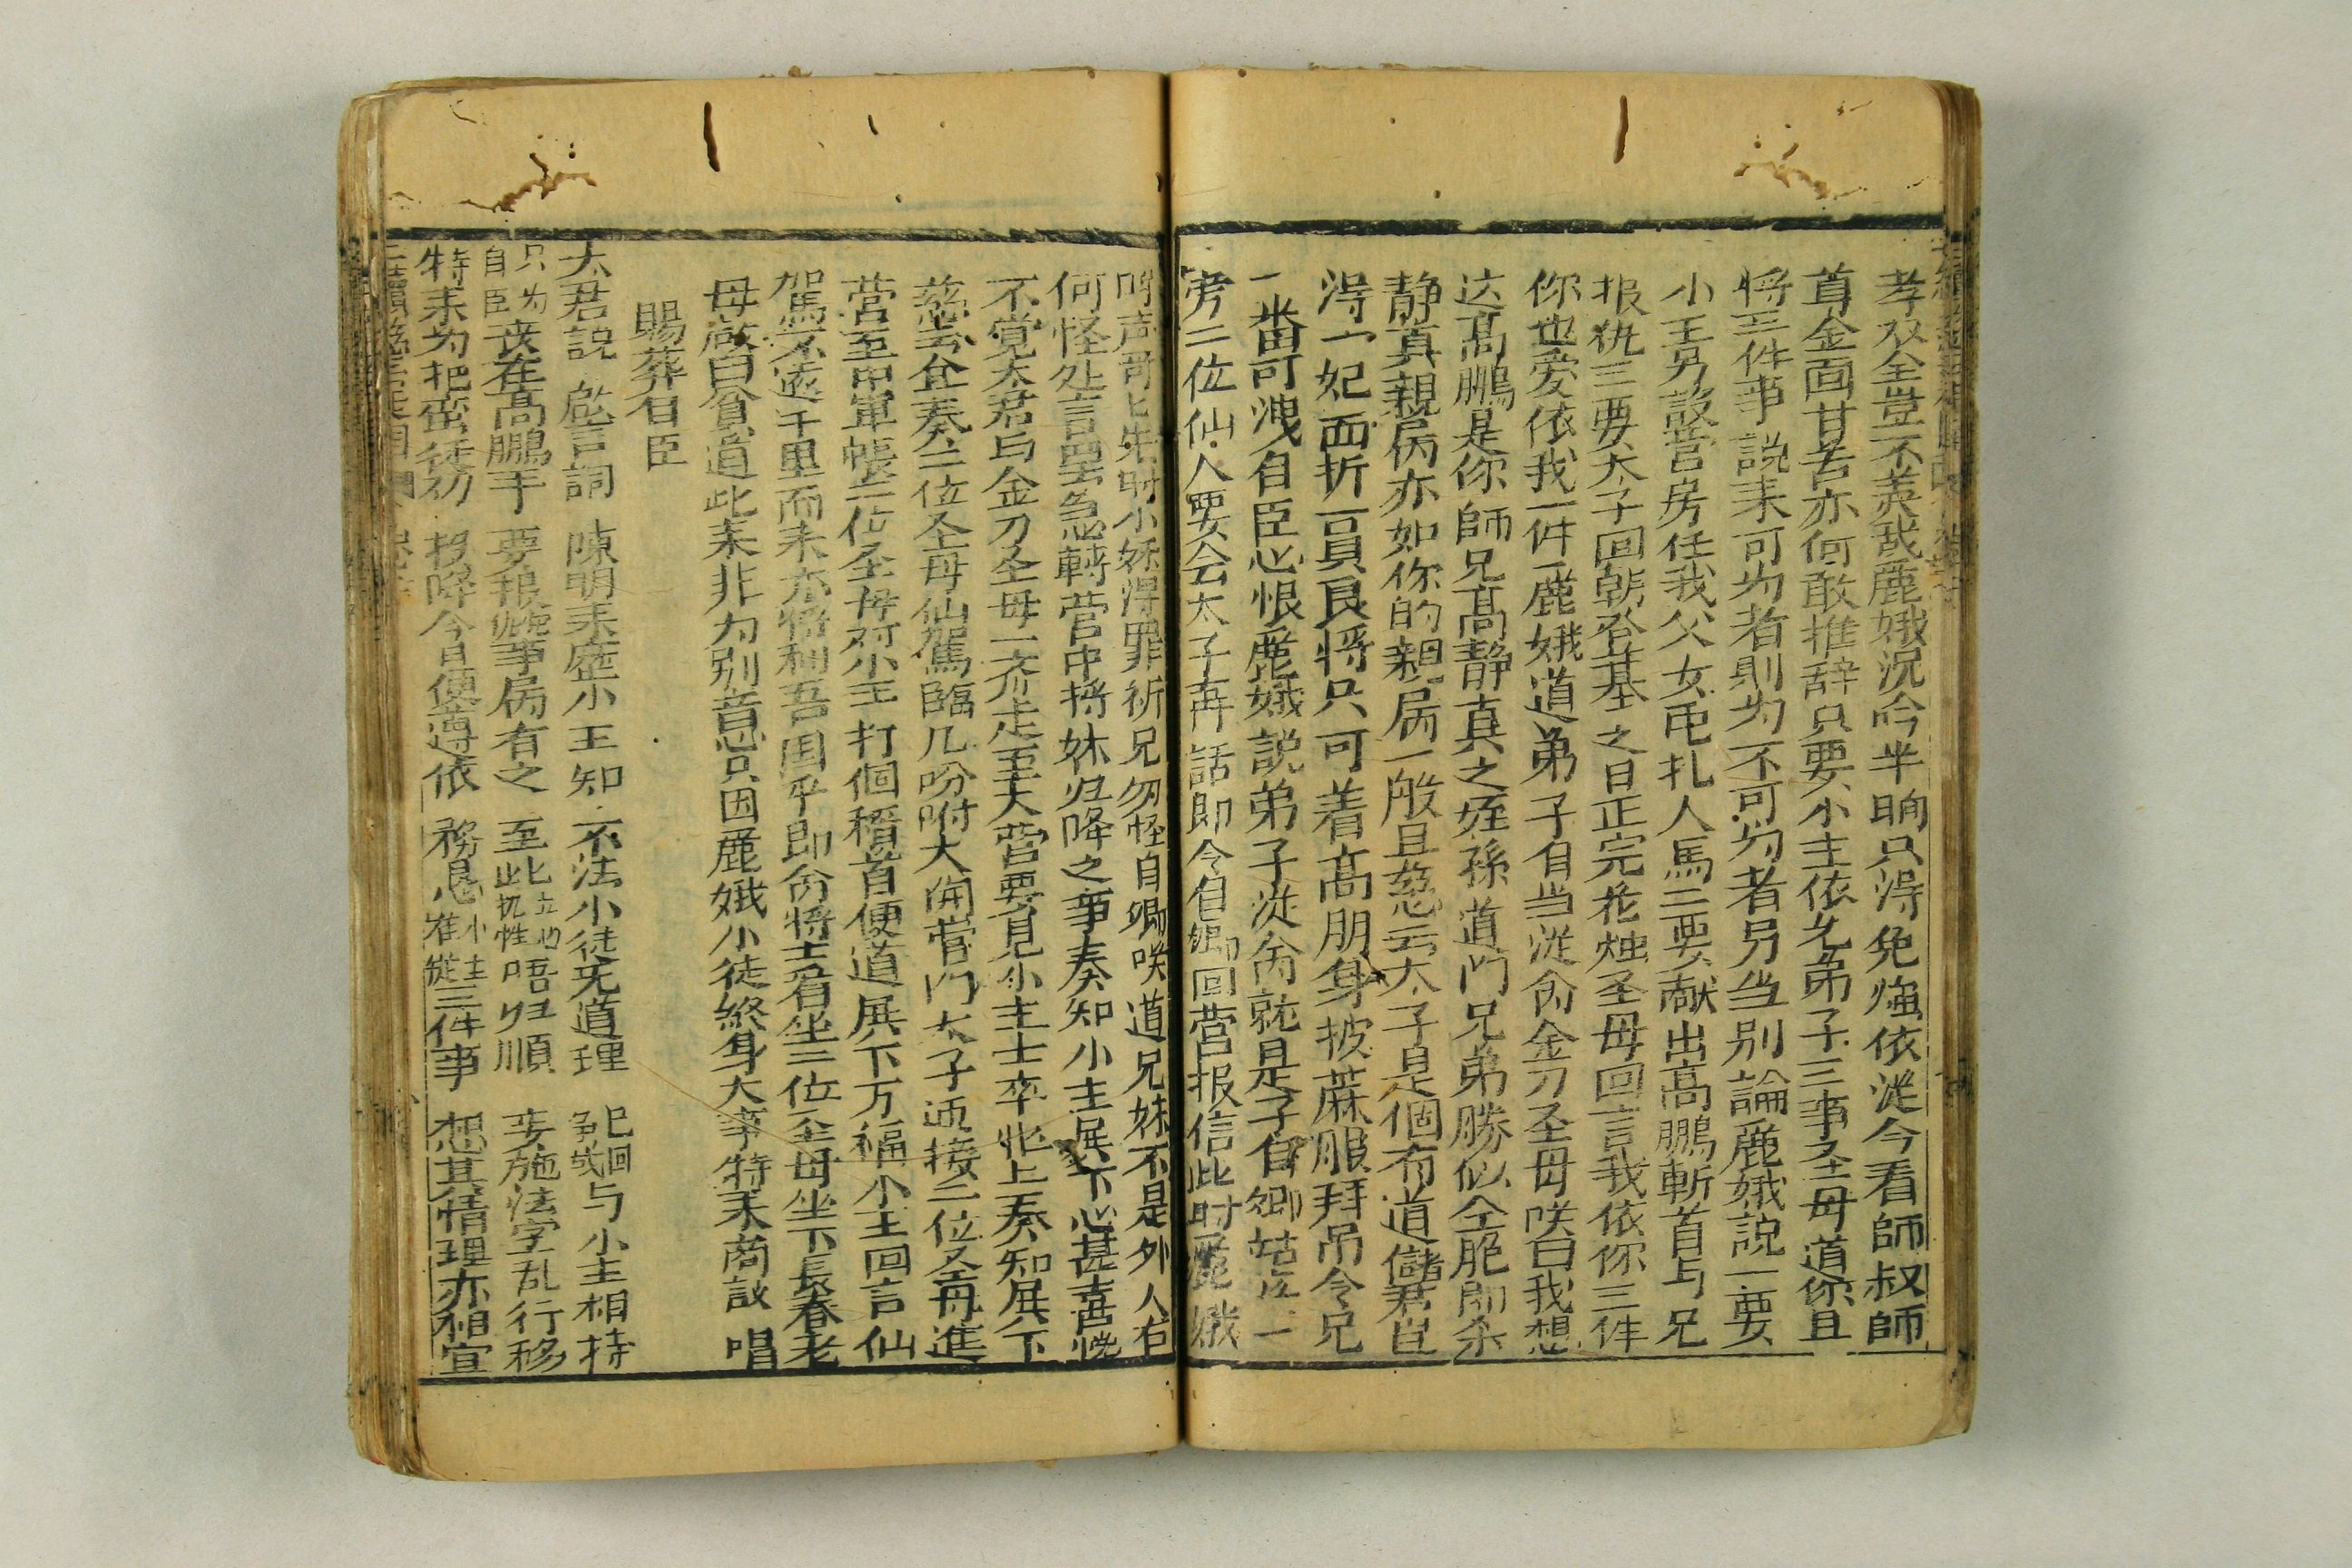 孝双全豈不羙哉鹿娥况吟半晌只淂免強依從今看師叔師
首金面甘苦亦何敢推辞只要小主依允弟子三事圣母道你且
将三件事説耒可为者則为不可为者另当别論鹿娥説一要
小王另設营房任我父女屯扎人馬二要献出髙鵬斬首与兄
报仇三要太子回朝登基之日正完花烛圣母回言我依你三件
你也爱依我一件鹿娥道弟子自当従命金刀圣母咲曰我想
这髙鵬是你師兄髙静真之姪孫道门兄弟勝似仝胞即杀
静真親房亦如你的親房一般且慈云太子是個有道儲君岂
淂一妃而折一員良将只可着髙朋身披蔴服拜吊令兄
一番可洩自臣此恨鹿娥説弟子従命就是了自卿姑
旁二位仙人要会太子再話即令自卿回营报信此时鹿娥
声哥七先时小妹淂罪祈兄勿怪自卿咲道兄妹不是外人有
何怪处言罢急轉营中将妹归降之事奏知小主展下心甚喜恍
不覚太君与金刀圣母一齐走至大营要見小主士卒忙上奏知展下
慈云仝奏二位圣母仙駕臨凡吩咐大開营门太子迊接二位圣母進
营至中軍帳二位圣母对小王打個稽首便道展下万福小王回言仙
駕不遠千里而耒亦将利吾国乎即命将士看坐二位圣母坐下長春老
母啟白貧道此耒非为别意只因鹿娥小徒終身大事特耒商議 唱
賜葬召臣
太君説 啟言詞 陳明耒歴小王知 不法小徒无道理 已回争战与小主相持
只为自臣丧在髙鵬手 要报寃事房有之 至此九性立此唔归順 妄施法字乱行移
特耒为把蛮徒劝 投降今日便遵依 務恳小主准従三件事 想其情理亦相宜